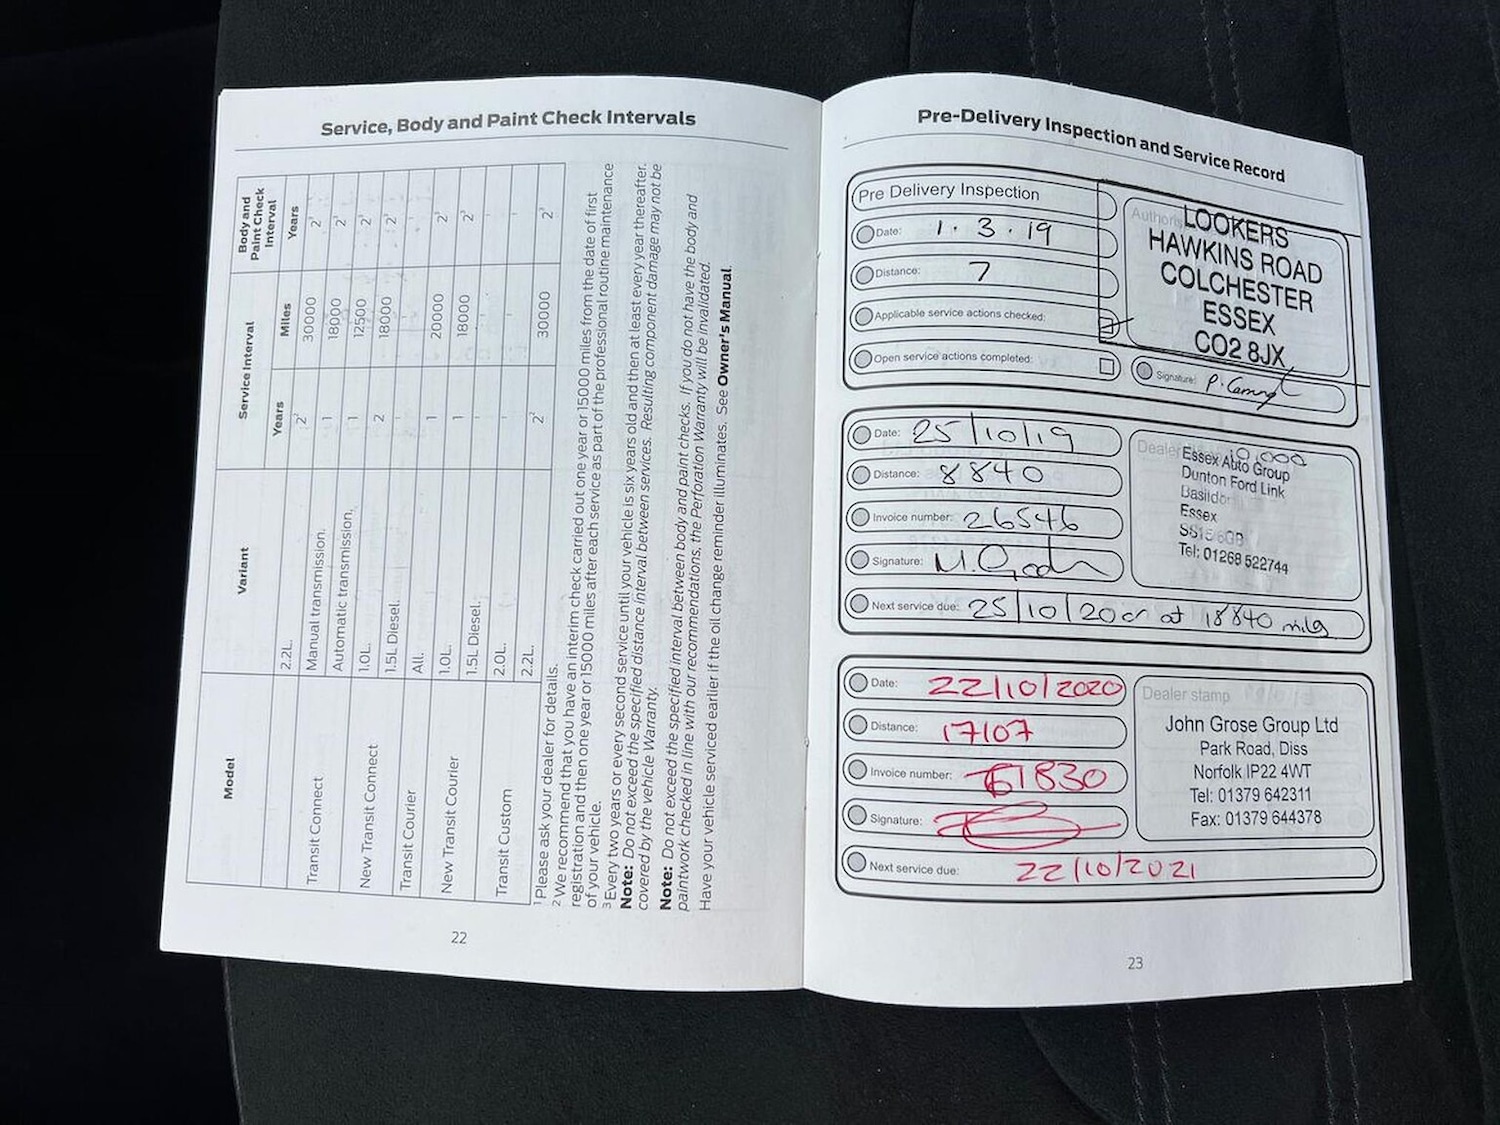 Service, Body and Paint Check Intervals
Model
Variant
Service Interval
Body and
Paint Check
Interval
Years
Miles
Years
2.2L.
Transit Connect
Manual transmission.
2²
30000
2³
Automatic transmission.
1
18000
2³
New Transit Connect
1.0L.
1
12500
2³
1.5L Diesel.
2
18000
2³
Transit Courier
All.
-
-
-
New Transit Courier
1.0L.
1
20000
2³
1.5L Diesel.
1
18000
2³
Transit Custom
2.0L.
-
-
-
2.2L.
2²
30000
2³
¹ Please ask your dealer for details.
² We recommend that you have an interim check carried out one year or 15000 miles from the date of first
registration and then one year or 15000 miles after each service as part of the professional routine maintenance
of your vehicle.
³ Every two years or every second service until your vehicle is six years old and then at least every year thereafter.
Note: Do not exceed the specified distance interval between services. Resulting component damage may not be
covered by the vehicle Warranty.
Note: Do not exceed the specified interval between body and paint checks. If you do not have the body and
paintwork checked in line with our recommendations, the Perforation Warranty will be invalidated.
Have your vehicle serviced earlier if the oil change reminder illuminates. See Owner's Manual.
22
Pre-Delivery Inspection and Service Record
Pre Delivery Inspection
Date: 1.3.19
Distance: 7
Applicable service actions checked:
Open service actions completed:
LOOKERS
HAWKINS ROAD
COLCHESTER
ESSEX
CO2 8JX
Signature:
Date: 25/10/19
Distance: 8840
Invoice number: 26546
Signature:
Next service due: 25/10/20 or at 18840 miles
Dealer
10,000
Essex Auto Group
Dunton Ford Link
Basildon
Essex
SS15 6GB
Tel: 01268 522744
Date: 22/10/2020
Distance: 17107
Invoice number: 61830
Signature:
Next service due: 22/10/2021
Dealer stamp
John Grose Group Ltd
Park Road, Diss
Norfolk IP22 4WT
Tel: 01379 642311
Fax: 01379 644378
23